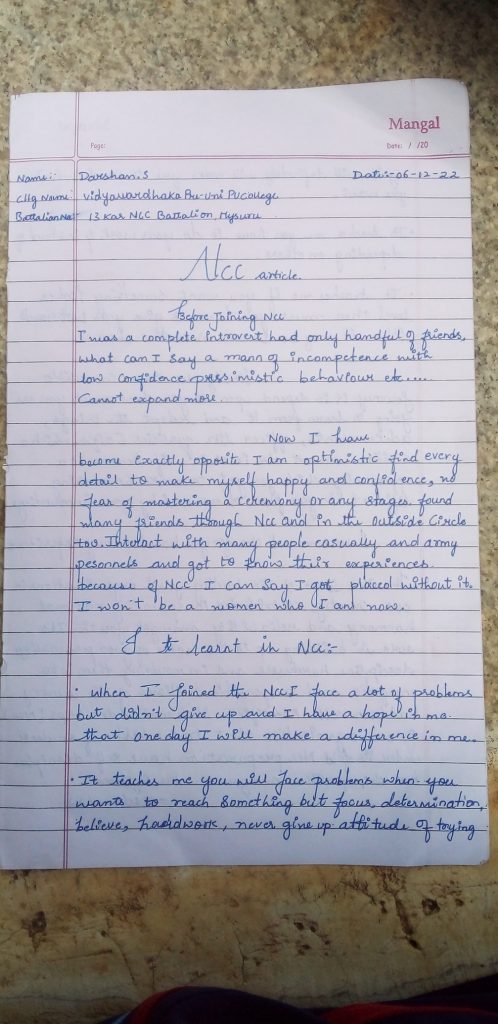 Mangal
Page:
Date: / /20
Name:- Darshan.S Date:-06-12-22
Clg Name: Vidyavardhaka Pre-Uni PU College
Battalion No:- 13 Kar NCC Battalion, Mysuru
NCC article.
Before Joining NCC
I was a complete introvert had only handful of friends,
what can I say a mann of incompetence with
low confidence pressimistic behaviour etc....
Cannot expand more.
Now I have
become exactly opposite I am optimistic find every
detail to make myself happy and confidence, no
fear of mastering a ceremony or any stages, found
many friends though NCC and in the outside Circle
too. Interact with many people casually and army
pesonnels and got to know their experiences.
because of NCC I can say I got placed without it.
I won't be a women who I am now.
I learnt in NCC:-
• When I joined the NCC I face a lot of problems
but didn't give up and I have a hope in me
that one day I will make a difference in me.
• It teaches me you will face problems when you
wants to reach something but focus, determination,
believe, hardwork, never give up attitude of trying